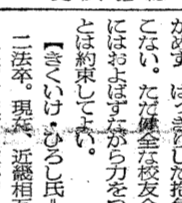 かめず　はっきりした抱負
こない。ただ健全な校友会
にはおよばずたがら力をつ
とは約束してよい。
【きくいけ・ひろし氏‖
二法卒。現在、近畿相互